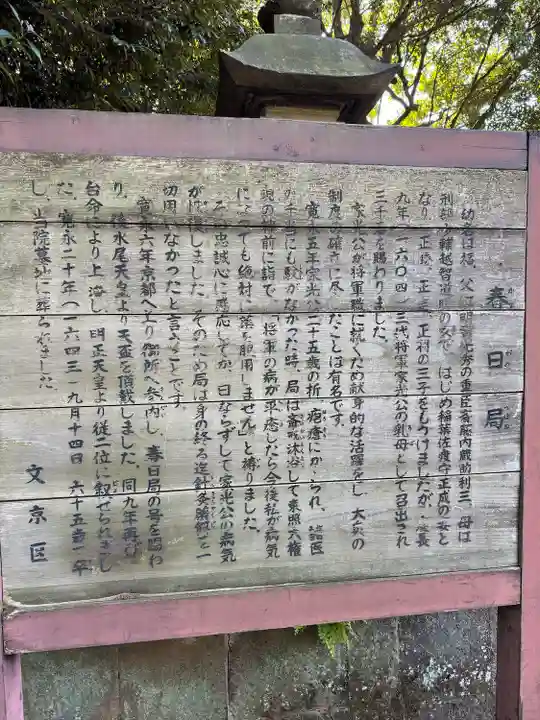 春日局
かすがのつぼね
幼名は福、父は明智光秀の重臣斎藤内蔵助利三、母は
刑部少輔越智道明の女で、はじめ稲葉佐渡守正成の妻と
なり、正勝、正定、正利の三子をもうけましたが、慶長
九年(一六〇四)三代将軍家光公の乳母として召出され
三千石を賜わりました。
家光公が将軍職に就くため献身的な活躍をし、大奥の
制度の確立に尽したことは有名です。
寛永五年家光公二十五歳の折、疱瘡にかかられ、諸医
が手当にも験がなかった時、局は斎戒沐浴して東照大権
現の神前に詣で、「将軍の病が平癒したら今後私が病気
になっても絶対に薬を服用しません」と祷りました。
忠誠心に感応してか、日ならずして家光公の病気
が快復しました。そのため局は身の終る迄針灸薬餌を一
切用いなかったと言うことです。
寛永六年京都へ上り御所へ参内し、春日局の号を賜わ
り、後水尾天皇より天盃を頂戴しました。同九年再び
台命により上洛し、明正天皇より従二位に叙せられまし
た。寛永二十年(一六四三)九月十四日、六十五歳で卒
し、当院墓地に葬られました。
文京区